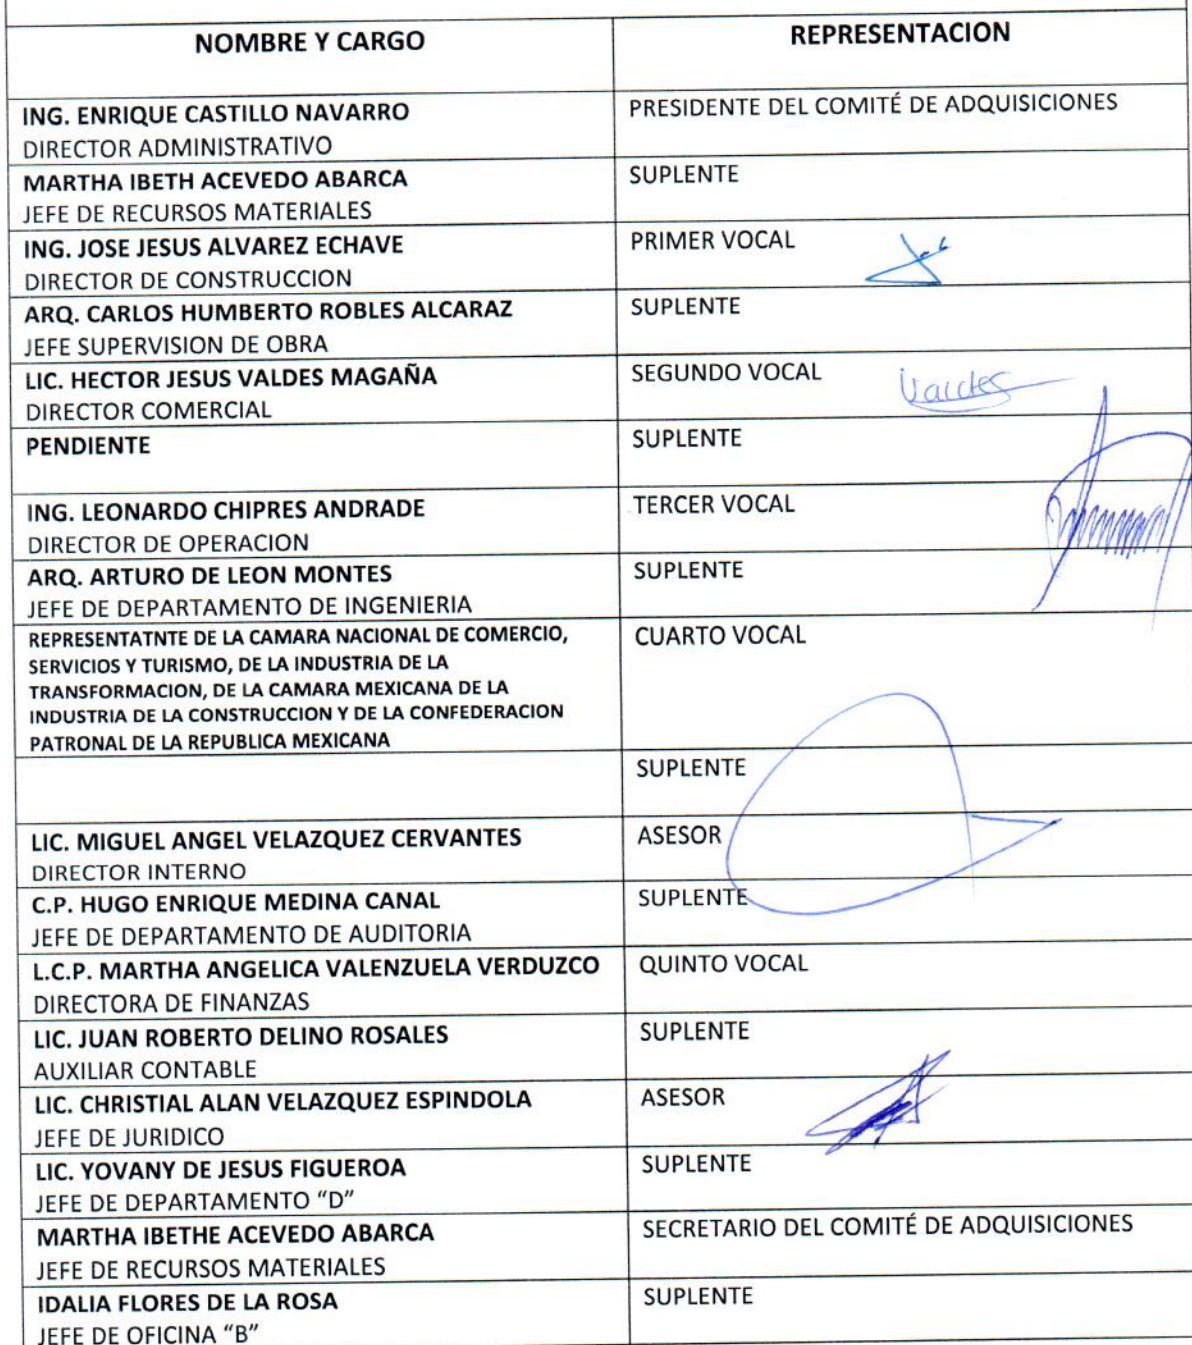 NOMBRE Y CARGO
REPRESENTACION
ING. ENRIQUE CASTILLO NAVARRO
DIRECTOR ADMINISTRATIVO
PRESIDENTE DEL COMITÉ DE ADQUISICIONES
MARTHA IBETH ACEVEDO ABARCA
JEFE DE RECURSOS MATERIALES
SUPLENTE
ING. JOSE JESUS ALVAREZ ECHAVE
DIRECTOR DE CONSTRUCCION
PRIMER VOCAL
ARQ. CARLOS HUMBERTO ROBLES ALCARAZ
JEFE SUPERVISION DE OBRA
SUPLENTE
LIC. HECTOR JESUS VALDES MAGAÑA
DIRECTOR COMERCIAL
SEGUNDO VOCAL
Valdes
PENDIENTE
SUPLENTE
ING. LEONARDO CHIPRES ANDRADE
DIRECTOR DE OPERACION
TERCER VOCAL
ARQ. ARTURO DE LEON MONTES
JEFE DE DEPARTAMENTO DE INGENIERIA
SUPLENTE
REPRESENTATNTE DE LA CAMARA NACIONAL DE COMERCIO,
SERVICIOS Y TURISMO, DE LA INDUSTRIA DE LA
TRANSFORMACION, DE LA CAMARA MEXICANA DE LA
INDUSTRIA DE LA CONSTRUCCION Y DE LA CONFEDERACION
PATRONAL DE LA REPUBLICA MEXICANA
CUARTO VOCAL
SUPLENTE
LIC. MIGUEL ANGEL VELAZQUEZ CERVANTES
DIRECTOR INTERNO
ASESOR
C.P. HUGO ENRIQUE MEDINA CANAL
JEFE DE DEPARTAMENTO DE AUDITORIA
SUPLENTE
L.C.P. MARTHA ANGELICA VALENZUELA VERDUZCO
DIRECTORA DE FINANZAS
QUINTO VOCAL
LIC. JUAN ROBERTO DELINO ROSALES
AUXILIAR CONTABLE
SUPLENTE
LIC. CHRISTIAL ALAN VELAZQUEZ ESPINDOLA
JEFE DE JURIDICO
ASESOR
LIC. YOVANY DE JESUS FIGUEROA
JEFE DE DEPARTAMENTO “D”
SUPLENTE
MARTHA IBETHE ACEVEDO ABARCA
JEFE DE RECURSOS MATERIALES
SECRETARIO DEL COMITÉ DE ADQUISICIONES
IDALIA FLORES DE LA ROSA
JEFE DE OFICINA “B”
SUPLENTE